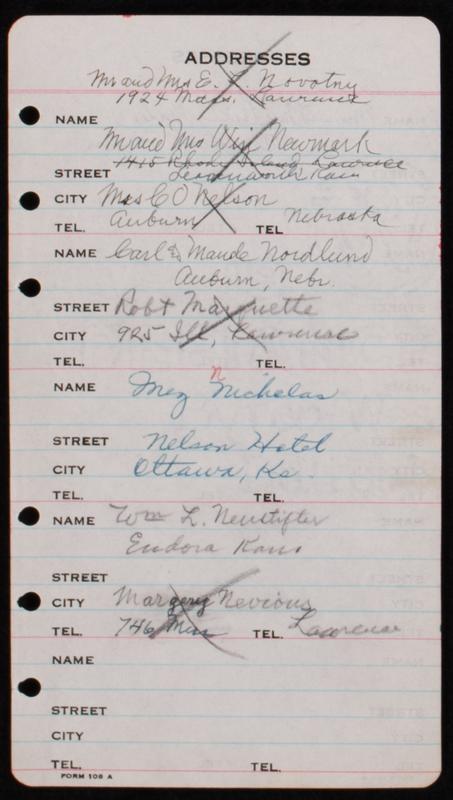 ADDRESSES
Mr and Mrs E. L. Novotny
1924 Mass. Lawrence
NAME
Mr and Mrs Will Newmark
1415 Rhode Island Lawrence
STREET Leavenworth Kans
CITY Mrs C O Nelson
TEL. Auburn TEL Nebraska
NAME Carl & Maude Nordlund
Auburn, Nebr.
STREET Robt Marquette
CITY 925 Ill, Lawrence
TEL. TEL.
n
NAME Meg Nicholas
STREET Nelson Hotel
CITY Ottawa, Ks.
TEL. TEL.
NAME Wm L. Neustifter
Eudora Kans
STREET
CITY Margery Nevious
TEL. 746 Miss TEL. Lawrence
NAME
STREET
CITY
TEL. TEL.
FORM 108 A